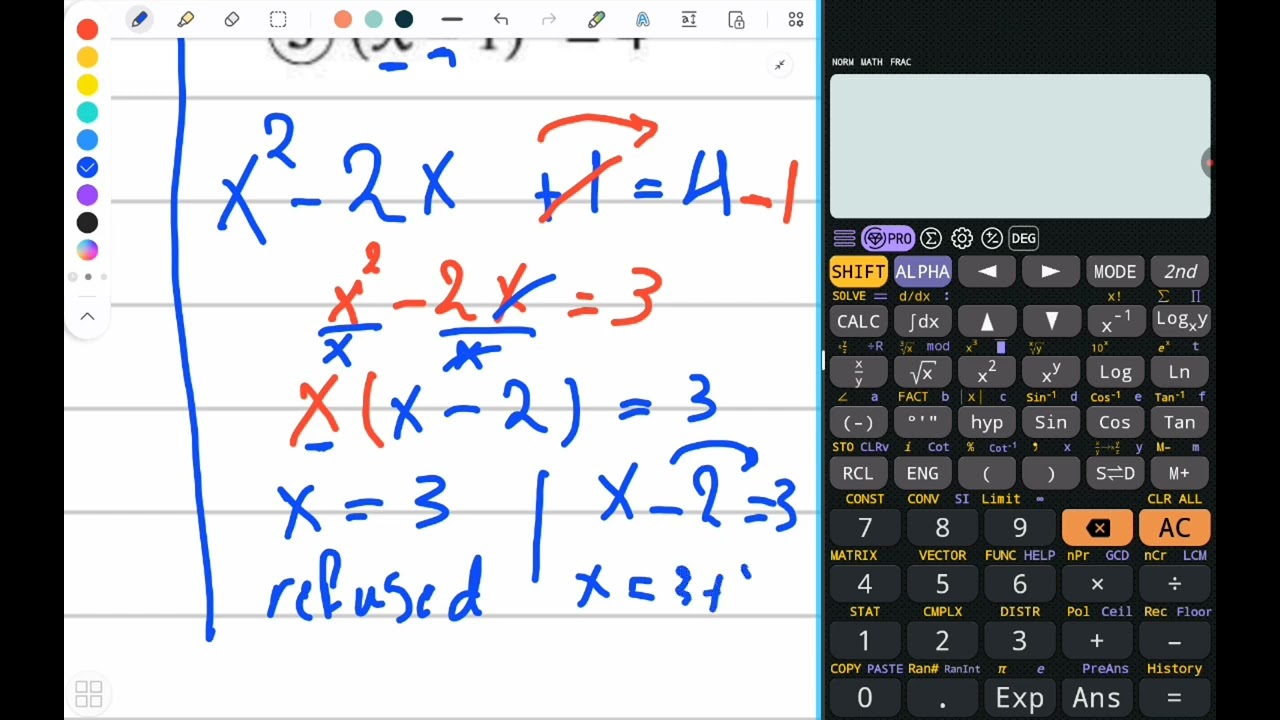 ③ (x - 1) = 4
x² - 2x + 1 = 4 - 1
x² - 2x = 3
x x
x(x - 2) = 3
x = 3 | x - 2 = 3
refused x = 3 +
NORM MATH FRAC
PRO Σ DEG
SHIFT ALPHA ◀ ▶ MODE 2nd
SOLVE = d/dx : x! Σ ∏
CALC ∫dx ▲ ▼ x⁻¹ Logₓy
÷R ³√x mod x³ ˣ√y 10ˣ eˣ t
x/y √x x² xʸ Log Ln
∠ a FACT b |x| c Sin⁻¹ d Cos⁻¹ e Tan⁻¹ f
(-) °'" hyp Sin Cos Tan
STO CLRv i Cot % Cot⁻¹ , x y M- m
RCL ENG ( ) S⇌D M+
CONST CONV SI Limit ∞ CLR ALL
7 8 9 AC
MATRIX VECTOR FUNC HELP nPr GCD nCr LCM
4 5 6 × ÷
STAT CMPLX DISTR Pol Ceil Rec Floor
1 2 3 + −
COPY PASTE Ran# RanInt π e PreAns History
0 . Exp Ans =